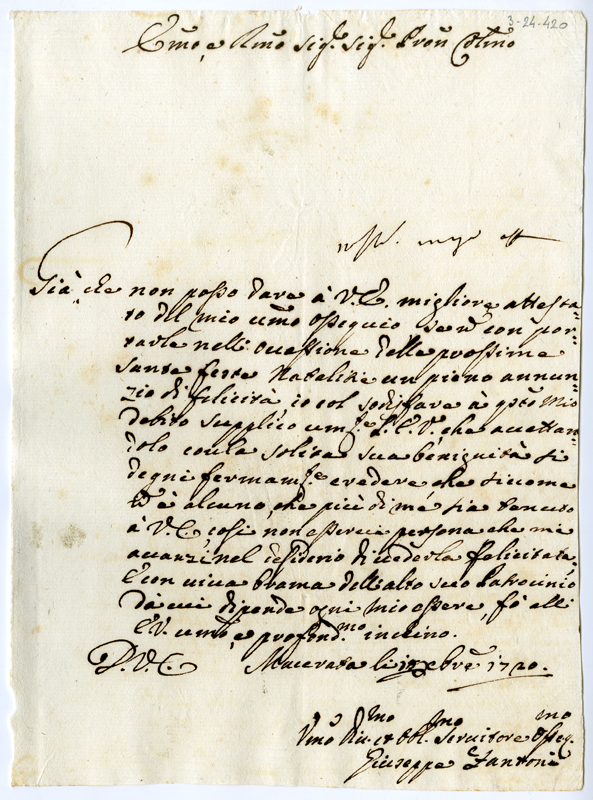 3-24-420
Emo, e Rmo Sigr. Sigr. Pron Colmo
Già che non posso dare à V.E. migliore attesta=
to del mio umo ossequio se n con por=
tarle nell' occassione delle prossime
Sante feste Natalitie un pieno annun=
zio di felicità, io col sodisfare à qsto mio
debito supplico umte. L'E.V., che accettan=
dolo con la solita sua benignità si
degni fermamte. credere che siccome
è alcuno, che più di mé sia tenuto
à V.E., così non esserci persona che mi
avanzi nel desiderio di vederla felicitata,
E con viva brama dell'alto suo Patrocinio
dà cui dipende ogni mio essere, fò all'
E.V. umo, e profondmo. inchino.
D.V.E. Macerata li Xbre 1720.
Vmo Diu. et Obl.mo Servitore Osseq.mo
Giuseppe Zantoni